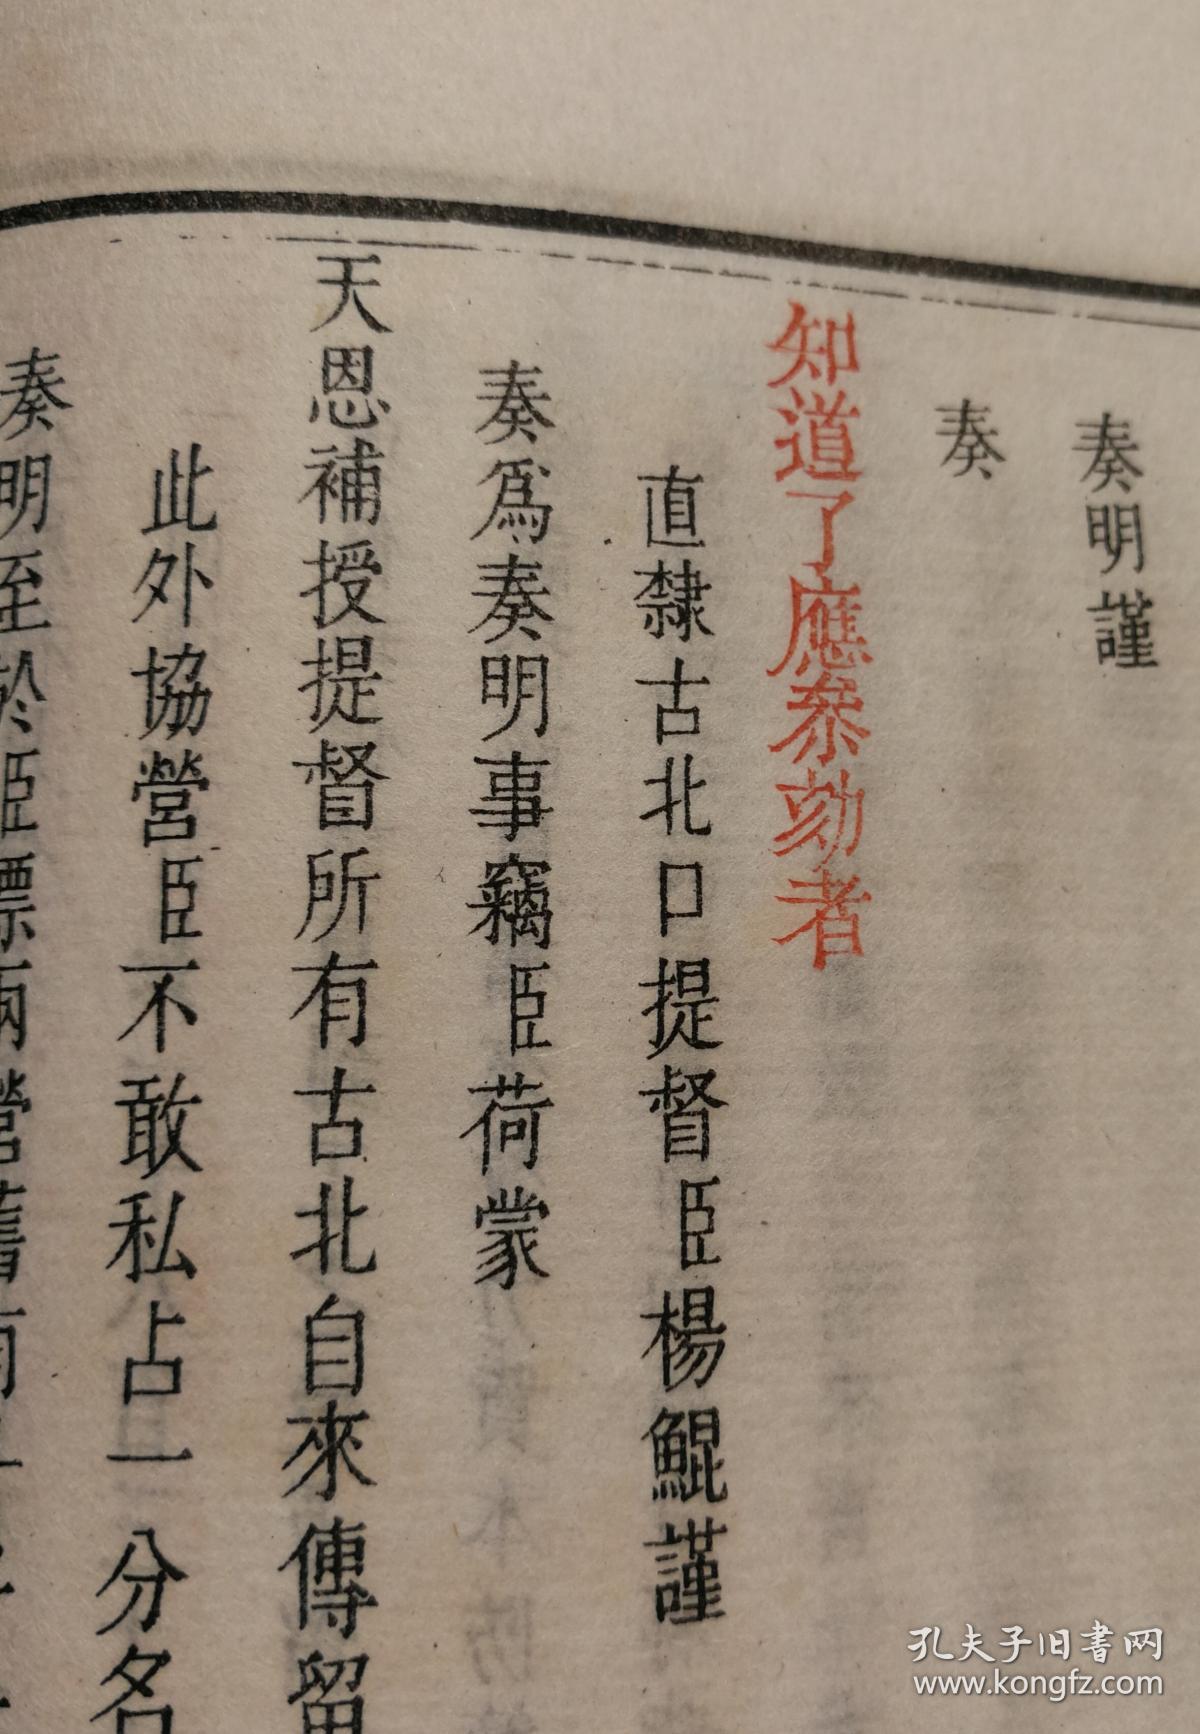 奏明謹
奏
知道了應叅劾者
直隸古北口提督臣楊鯤謹
奏爲奏明事竊臣荷蒙
天恩補授提督所有古北自來傳留
此外協營臣不敢私占一分名
奏明至於臣標兩營舊有
孔夫子旧书网
www.kongfz.com